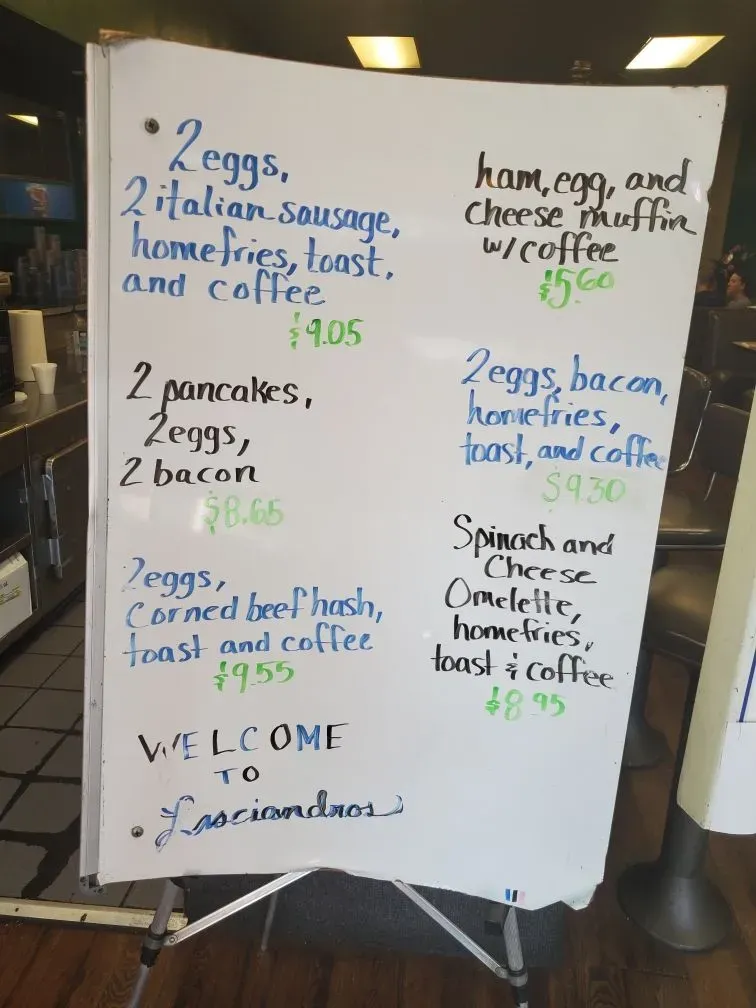 2 eggs,
2 italian sausage,
homefries, toast,
and coffee
$9.05
2 pancakes,
2 eggs,
2 bacon
$8.65
2 eggs,
Corned beef hash,
toast and coffee
$9.55
WELCOME
TO
Lasciandros
ham, egg, and
cheese muffin
w/ coffee
$5.60
2 eggs, bacon,
homefries,
toast, and coffee
$9.30
Spinach and
Cheese
Omelette,
homefries,
toast & coffee
$8.95